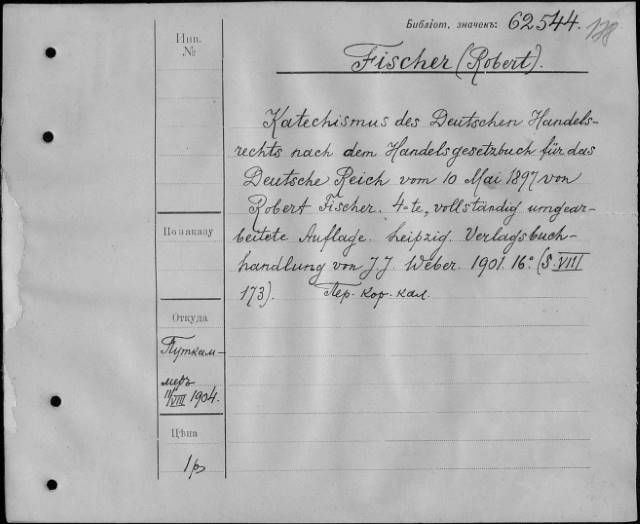 Библіот. значекъ: 62544. 178
Инв.
№
Fischer (Robert).
Katechismus des Deutschen Handels-
rechts nach dem Handelsgesetzbuch für das
Deutsche Reich vom 10 Mai 1897 von
Robert Fischer. 4-te, vollständig umgear-
beitete Auflage. Leipzig. Verlagsbuch-
handlung von J. J. Weber. 1901. 16.° (S. VIII
173). Пер. кор. кал.
По заказу
Откуда
Путкам-
меръ
11/VIII 1904.
Цѣна
1 р